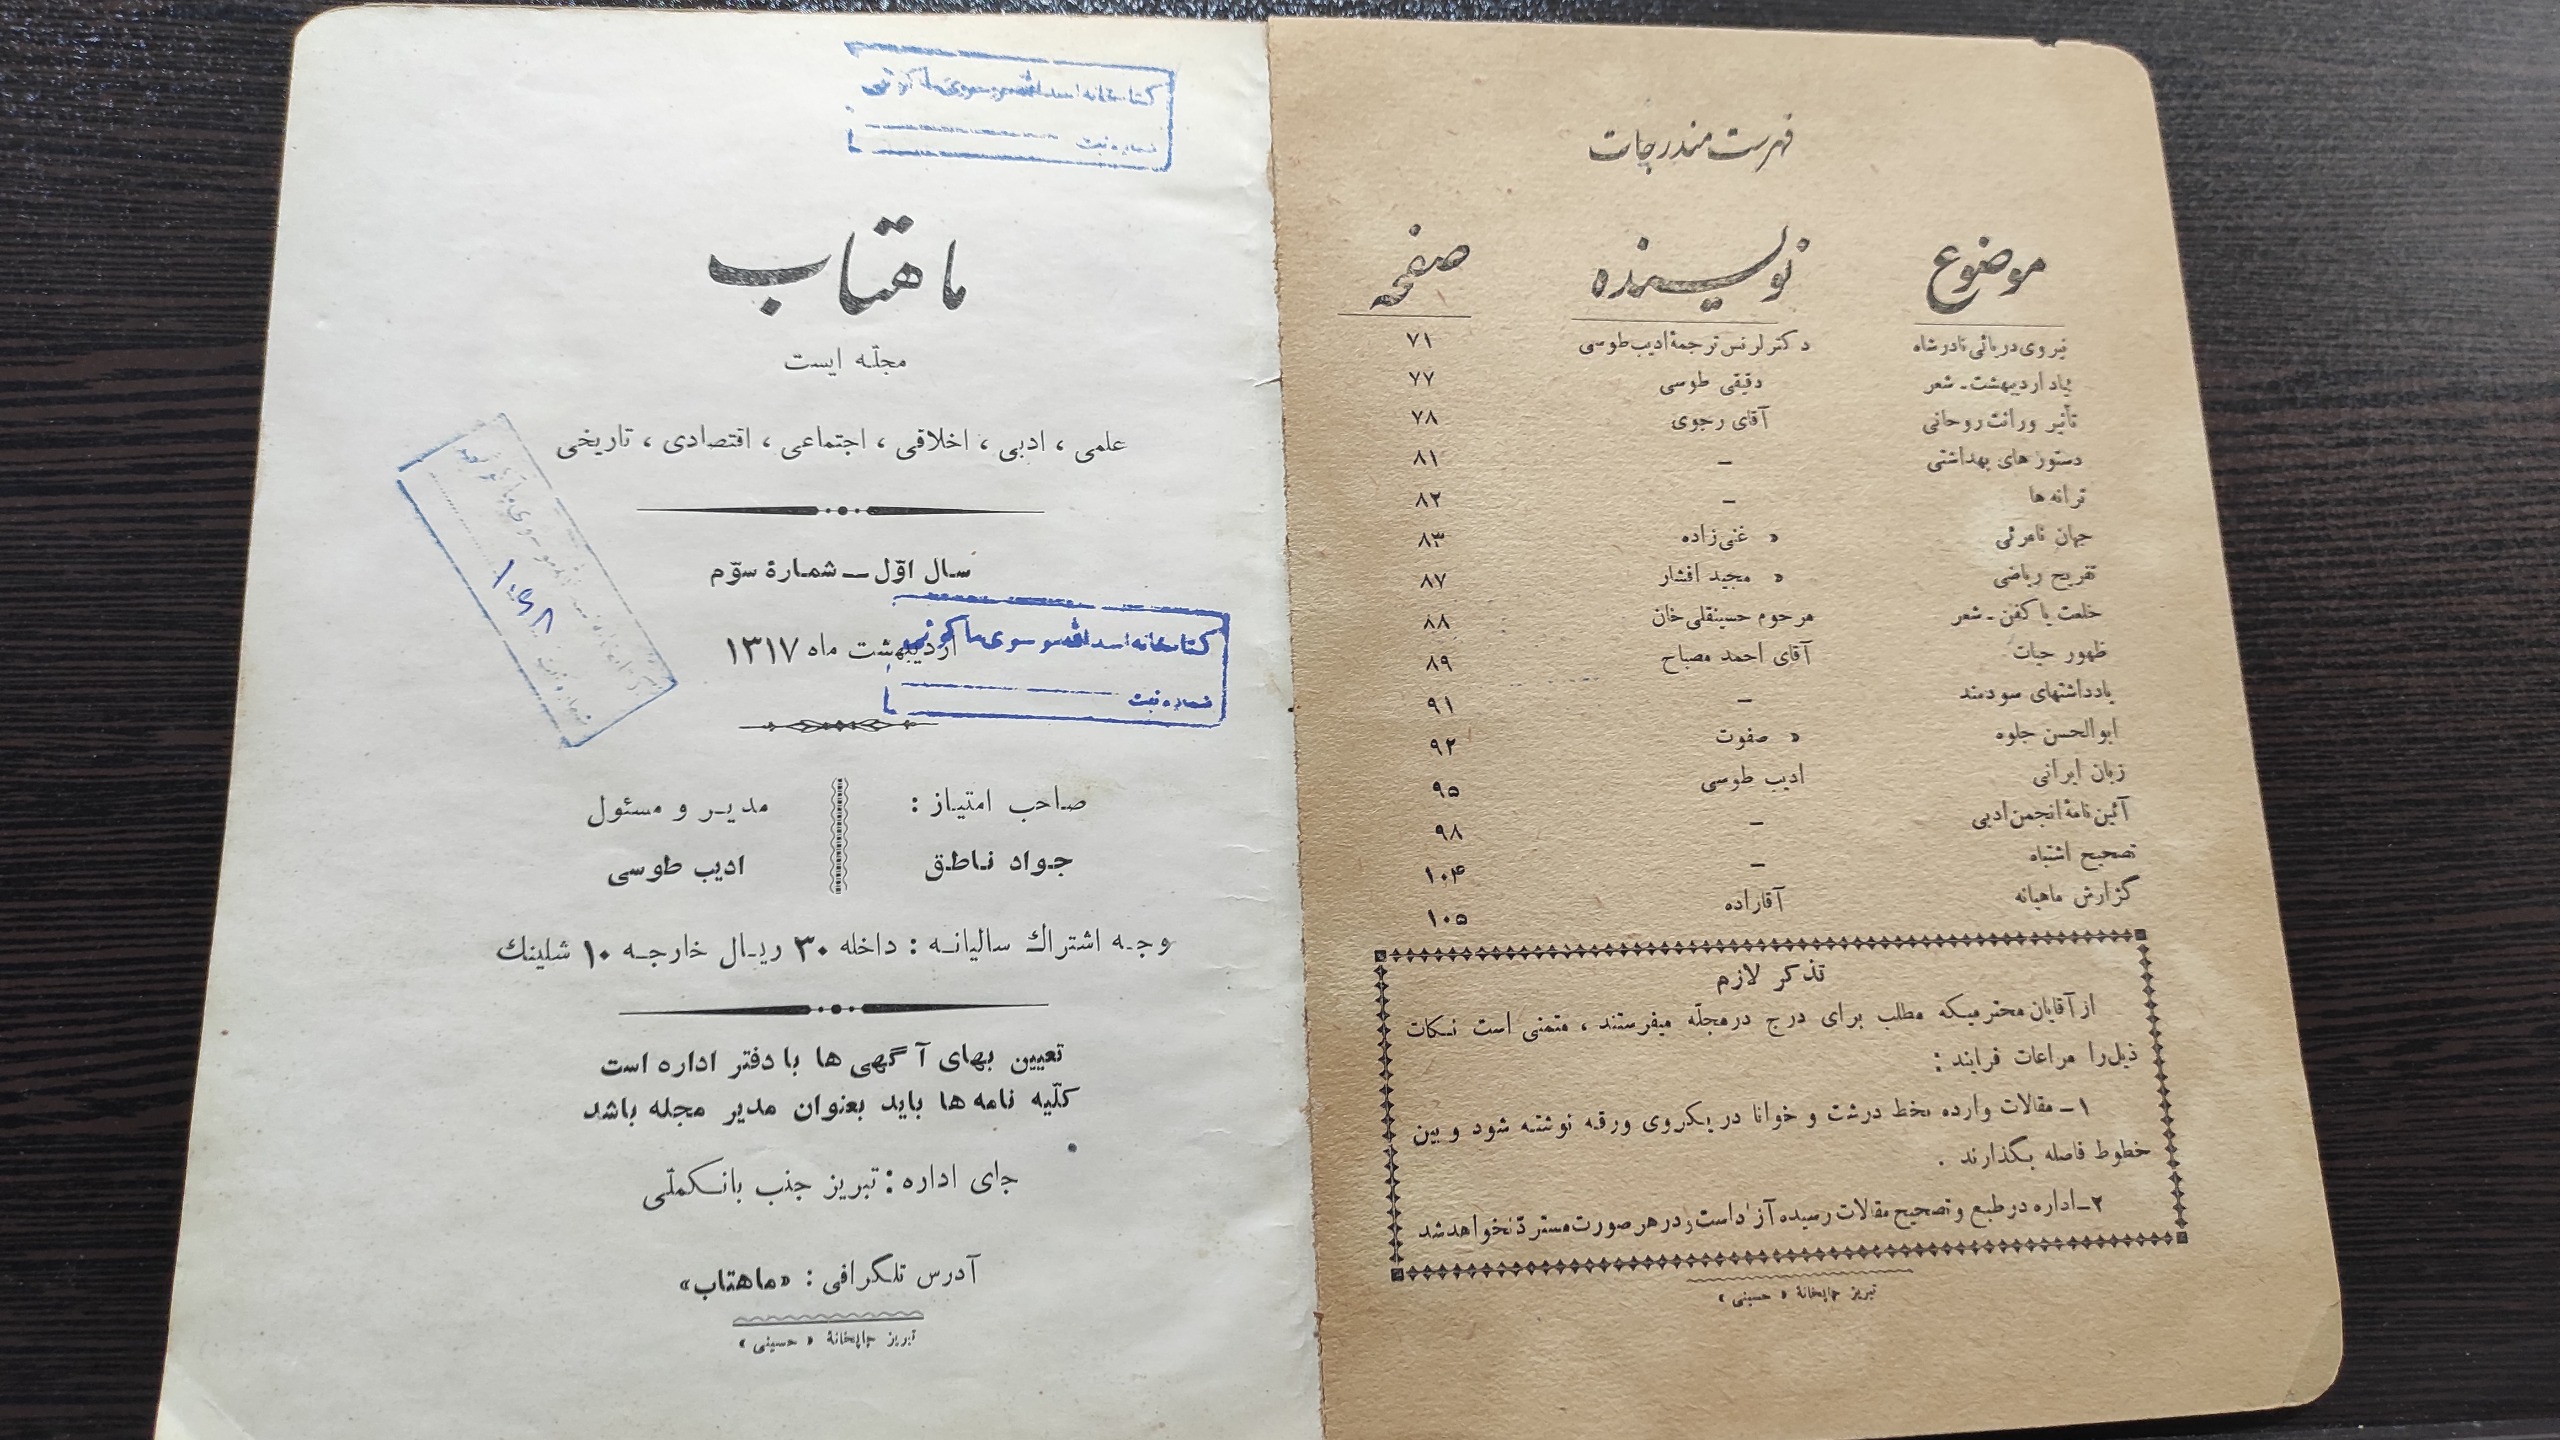 فهرست مندرجات
موضوع نویسنده صفحه
نیروی دریائی نادرشاه دکتر لرنس ترجمهٔ ادیب طوسی ۷۱
بیاد اردیبهشت ـ شعر دقیقی طوسی ۷۷
تأثیر وراثت روحانی آقای رجوی ۷۸
دستورهای بهداشتی – ۸۱
ترانه ها – ۸۲
جهان نامرئی » غنی‌زاده ۸۳
تفریح ریاضی » مجید افشار ۸۷
خلعت یا کفن ـ شعر مرحوم حسینقلی خان ۸۸
ظهور حیات آقای احمد مصباح ۸۹
یادداشتهای سودمند – ۹۱
ابوالحسن جلوه » صفوت ۹۲
زبان ایرانی ادیب طوسی ۹۵
آئین نامهٔ انجمن ادبی – ۹۸
تصحیح اشتباه – ۱۰۴
گزارش ماهیانه آقازاده ۱۰۵
تذکر لازم
از آقایان محترمیکه مطلب برای درج در مجلّه میفرستند ، متمنی است نکات
ذیل را مراعات فرایند :
۱ـ مقالات وارده بخط درشت و خوانا در یکروی ورقه نوشته شود و بین
خطوط فاصله بگذارند .
۲ـ اداره در طبع و تصحیح مقالات رسیده آزاد است و در هر صورت مستردّ نخواهد شد
تبریز چاپخانهٔ « حسینی »
کتابخانه اسدالله موسوی ماکوئی
شماره ثبت
ماهتاب
مجلّه ایست
علمی ، ادبی ، اخلاقی ، اجتماعی ، اقتصادی ، تاریخی
سال اوّل ــ شمارهٔ سوّم
اردیبهشت ماه ۱۳۱۷
کتابخانه اسدالله موسوی ماکوئی
شماره ثبت
شماره ثبت
صاحب امتیاز : مدیر و مسئول
جواد ناطق ادیب طوسی
وجه اشتراك سالیانه : داخله ۳۰ ریال خارجه ۱۰ شلینك
تعیین بهای آگهی ها با دفتر اداره است
کلّیه نامه ها باید بعنوان مدیر مجله باشد
جای اداره : تبریز جنب بانک‌ملّی
آدرس تلگرافی : «ماهتاب»
تبریز چاپخانهٔ « حسینی »